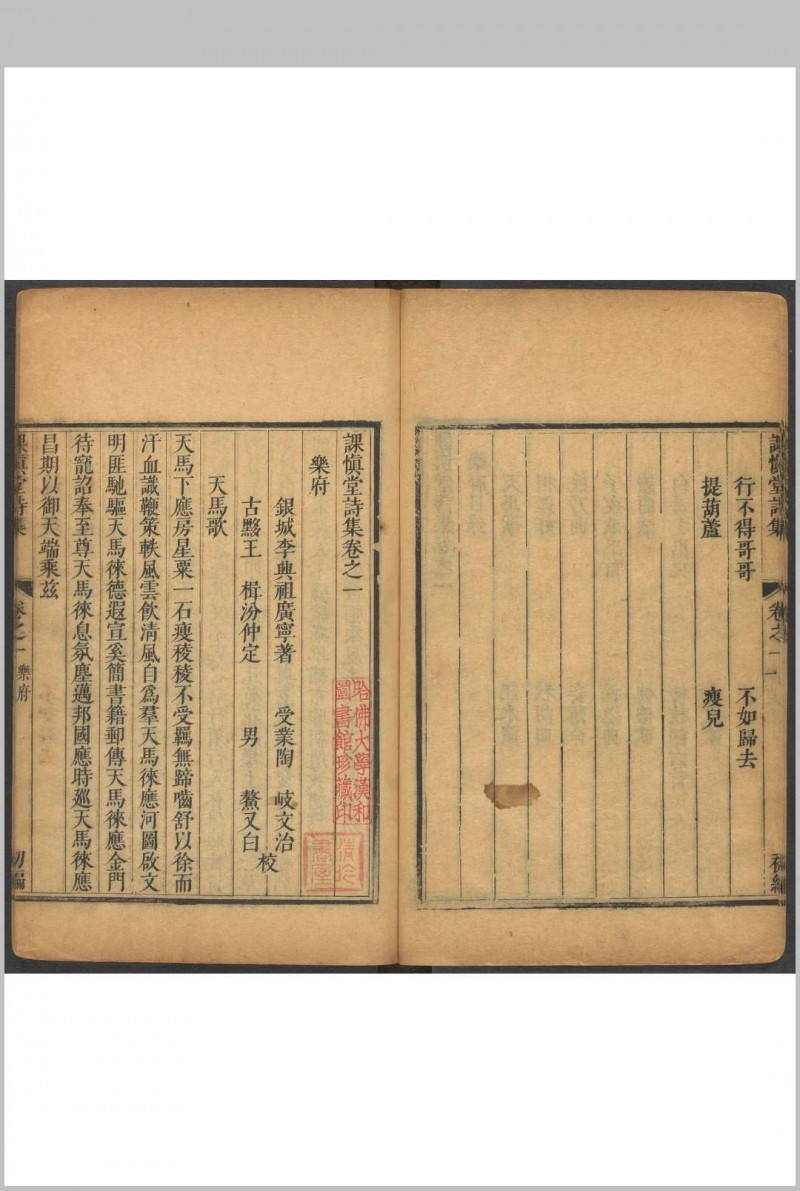 課慎堂詩集
卷之一
行不得哥哥
不如歸去
提葫蘆
瘦兒
課慎堂詩集卷之一
樂府
銀城李興祖廣寧著
受業陶 岐文治
古黟王 楫汾仲定
男 鰲又白
校
天馬歌
天馬下應房星粟一石瘦稜稜不受羈無蹄嚙舒以徐而
汗血識鞭策軼風雲飲清風自為羣天馬徠應河圖啟文
明匪馳驅天馬徠德遐宣奚簡書籍郵傳天馬徠應金門
待寵詔奉至尊天馬徠息氛塵邁邦國應時廵天馬徠應
昌期以御天端乘茲
課慎堂詩集
卷之一
樂府
初編
哈佛大學漢和
圖書館珍藏印